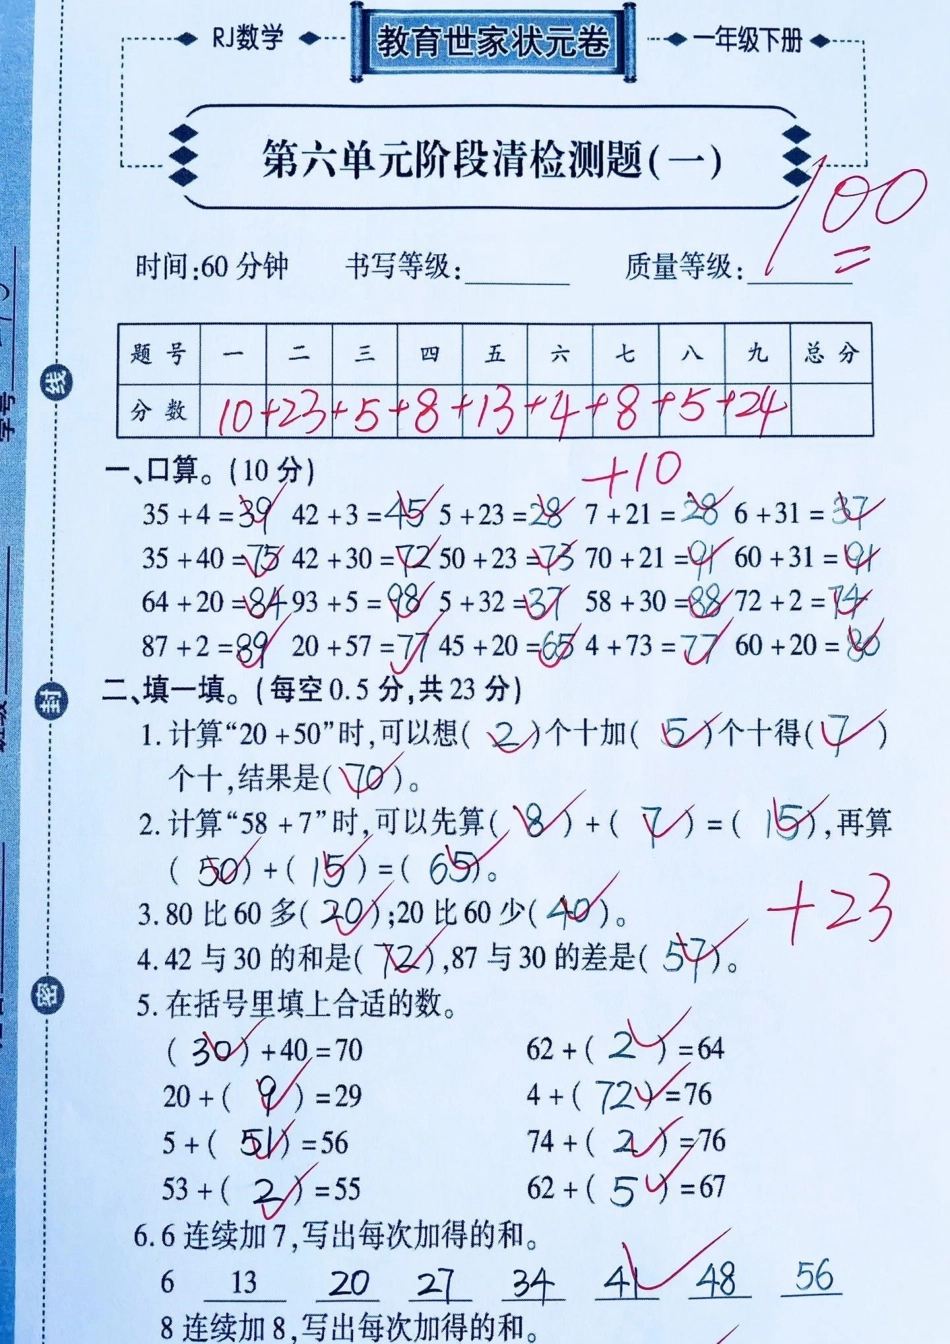 RJ数学 教育世家状元卷 一年级下册
第六单元阶段清检测题(一)
100
时间:60分钟 书写等级: 质量等级:
题号 一 二 三 四 五 六 七 八 九 总分
分数 10+23+5+8+13+4+8+5+24
一、口算。(10分) +10
35+4=39 42+3=45 5+23=28 7+21=28 6+31=37
35+40=75 42+30=72 50+23=73 70+21=91 60+31=91
64+20=84 93+5=98 5+32=37 58+30=88 72+2=74
87+2=89 20+57=77 45+20=65 4+73=77 60+20=80
二、填一填。(每空0.5分,共23分)
1.计算“20+50”时,可以想(2)个十加(5)个十得(7)
个十,结果是(70)。
2.计算“58+7”时,可以先算(8)+(7)=(15),再算
(50)+(15)=(65)。
3.80比60多(20);20比60少(40)。 +23
4.42与30的和是(72),87与30的差是(57)。
5.在括号里填上合适的数。
(30)+40=70 62+(2)=64
20+(9)=29 4+(72)=76
5+(51)=56 74+(2)=76
53+(2)=55 62+(5)=67
6.6连续加7,写出每次加得的和。
6 13 20 27 34 41 48 56
8连续加8,写出每次加得的和。
线
封
密
学号